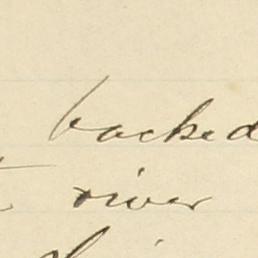 backed
river